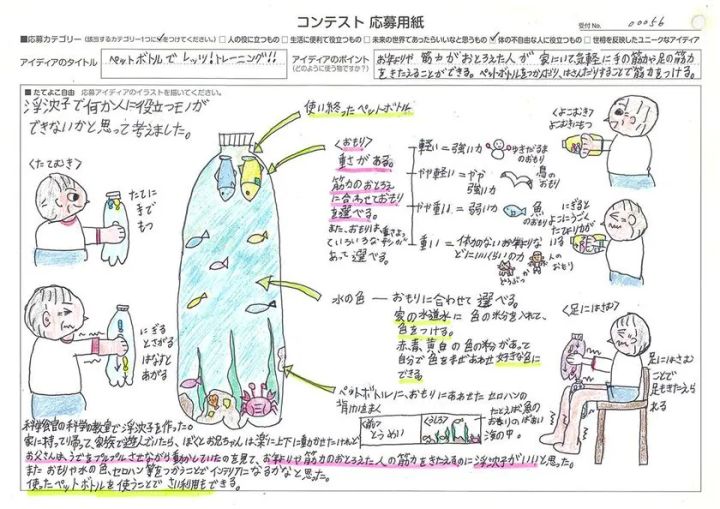 コンテスト 応募用紙
受付No. 00056
■応募カテゴリー(該当するカテゴリー1つに✓をつけてください。) □人の役に立つもの □生活に便利で役立つもの □未来の世界であったらいいなと思うもの ✓体の不自由な人に役立つもの □世相を反映したユニークなアイディア
アイディアのタイトル
ペットボトルで レッツ!トレーニング!!
アイディアのポイント
(どのように使う物ですか?)
お年よりや 筋力がおとろえた人が 家にいて気軽に手の筋力や足の筋力
をきたえることができる。ペットボトルをつかんだり、はさんだりすることで筋力をつける。
■たてよこ自由 応募アイディアのイラストを描いてください。
浮沈子で何か人に役立つモノが
できないかと思って考えました。
使い終ったペットボトル
<たてむき>
たてに
手で
もつ
にぎる
とさがる
はなすと
あがる
<おもり>
重さがある。
筋力のおとろえ
に合わせておもり
を選べる。
また、おもりは、
いろいろな
あって 選べる。
軽い=強い力
ゆきだるま
のおもり
やや軽い=やや
強い力
鳥の
おもり
やや重い=弱い力
魚
のおもり
重い=体力のないお年よりな
どにいいくらいの力
どうぶつ
人の
おもり
<よこむき>
よこむきにもつ
にぎると
よこにうごく
<足にはさむ>
足にはさむ
ことで
足もきたえら
れる
水の色 ― おもりに合わせて 選べる。
家の水道水に 色の粉を入れて、
色をつける。
赤、青、黄、白の色の粉があって
自分で色をまぜあわせ 好きな色に
できる。
ペットボトルに、おもりにあわせた セロハンの
背景をまく
<前>
とうめい
<うしろ>
たとえば魚の
おもりのばあい
海の中。
科学教室で浮沈子を作った。
家に持って帰って、家族で遊んでいたら、ぼくとお兄ちゃんは楽に上下に動かせたけれど
お父さんは、うでをプルプルさせながら動かしていたのを見て、お年よりや筋力のおとろえた人の筋力をきたえるのに浮沈子がいいと思った。
また おもりや水の色、セロハン等をつかうことでインテリアになるかなと思った。
使ったペットボトルを使うことで さい利用もできる。